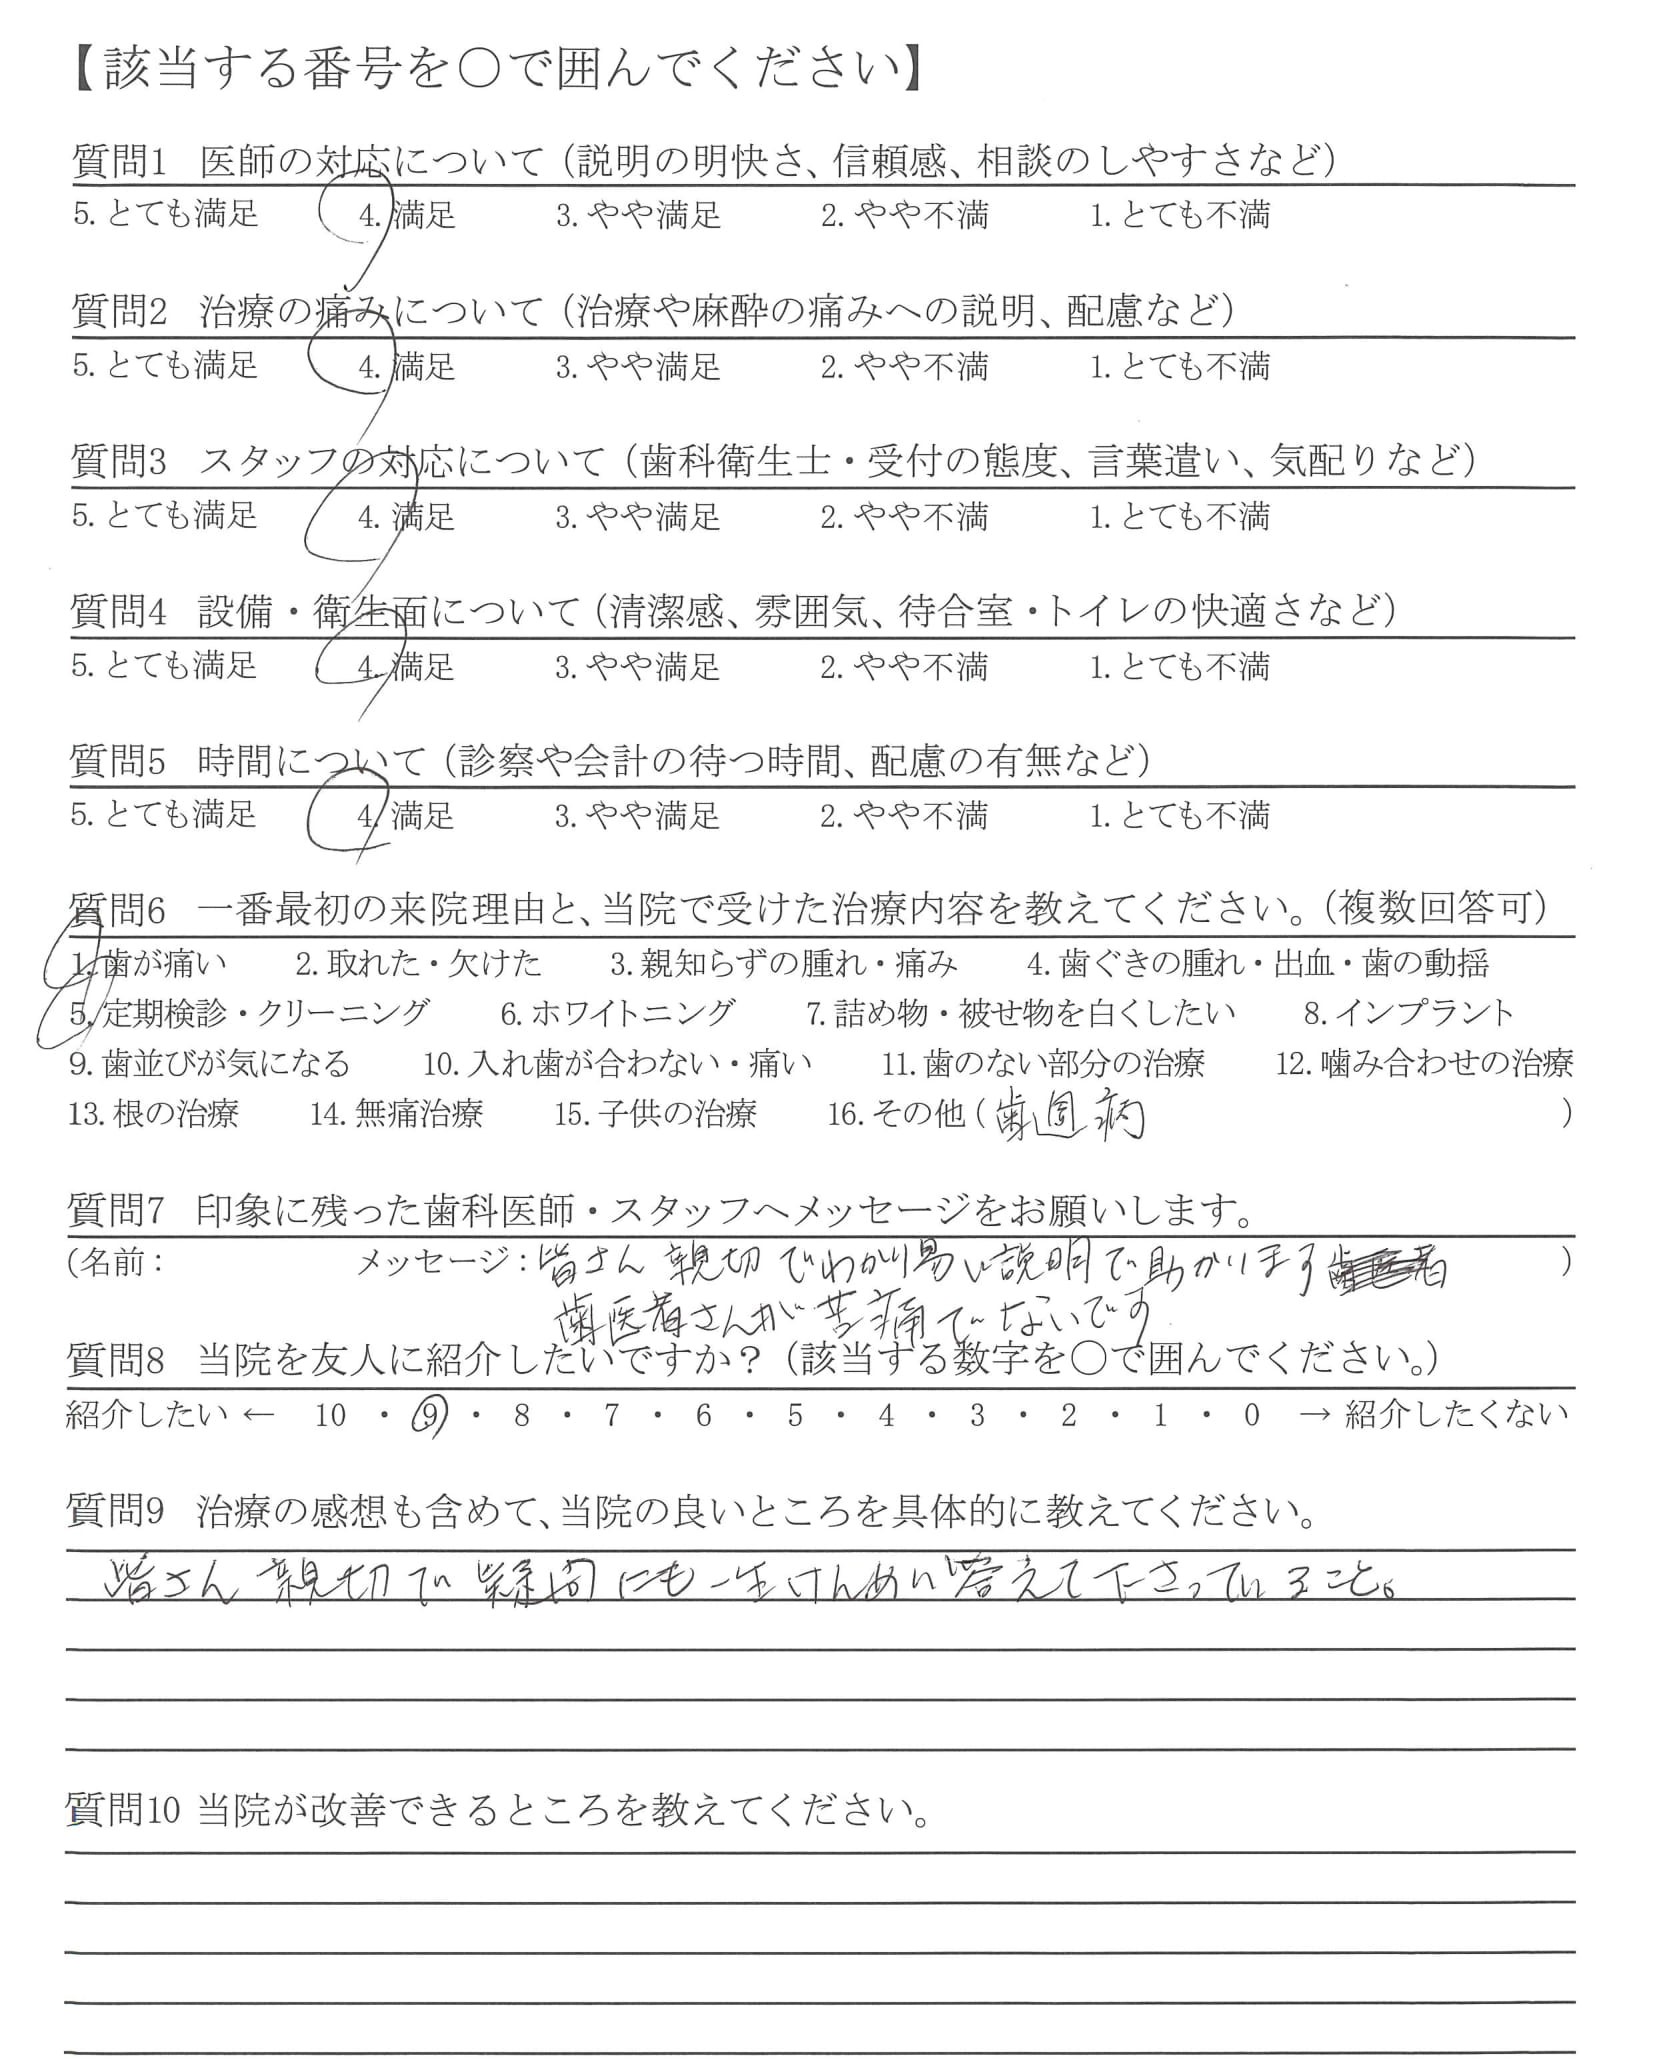 【該当する番号を〇で囲んでください】
質問1 医師の対応について（説明の明快さ、信頼感、相談のしやすさなど）
5. とても満足 4. 満足 3. やや満足 2. やや不満 1. とても不満
質問2 治療の痛みについて（治療や麻酔の痛みへの説明、配慮など）
5. とても満足 4. 満足 3. やや満足 2. やや不満 1. とても不満
質問3 スタッフの対応について（歯科衛生士・受付の態度、言葉遣い、気配りなど）
5. とても満足 4. 満足 3. やや満足 2. やや不満 1. とても不満
質問4 設備・衛生面について（清潔感、雰囲気、待合室・トイレの快適さなど）
5. とても満足 4. 満足 3. やや満足 2. やや不満 1. とても不満
質問5 時間について（診察や会計の待つ時間、配慮の有無など）
5. とても満足 4. 満足 3. やや満足 2. やや不満 1. とても不満
質問6 一番最初の来院理由と、当院で受けた治療内容を教えてください。（複数回答可）
1. 歯が痛い 2. 取れた・欠けた 3. 親知らずの腫れ・痛み 4. 歯ぐきの腫れ・出血・歯の動揺
5. 定期検診・クリーニング 6. ホワイトニング 7. 詰め物・被せ物を白くしたい 8. インプラント
9. 歯並びが気になる 10. 入れ歯が合わない・痛い 11. 歯のない部分の治療 12. 噛み合わせの治療
13. 根の治療 14. 無痛治療 15. 子供の治療 16. その他（歯周病 ）
質問7 印象に残った歯科医師・スタッフへメッセージをお願いします。
（名前： メッセージ：皆さん親切でわかり易い説明で助かります ）
歯医者さんが苦痛でないです
質問8 当院を友人に紹介したいですか？（該当する数字を〇で囲んでください。）
紹介したい ← 10 ・ 9 ・ 8 ・ 7 ・ 6 ・ 5 ・ 4 ・ 3 ・ 2 ・ 1 ・ 0 → 紹介したくない
質問9 治療の感想も含めて、当院の良いところを具体的に教えてください。
皆さん親切で疑問にも一生けんめい答えて下さっていること。
質問10 当院が改善できるところを教えてください。